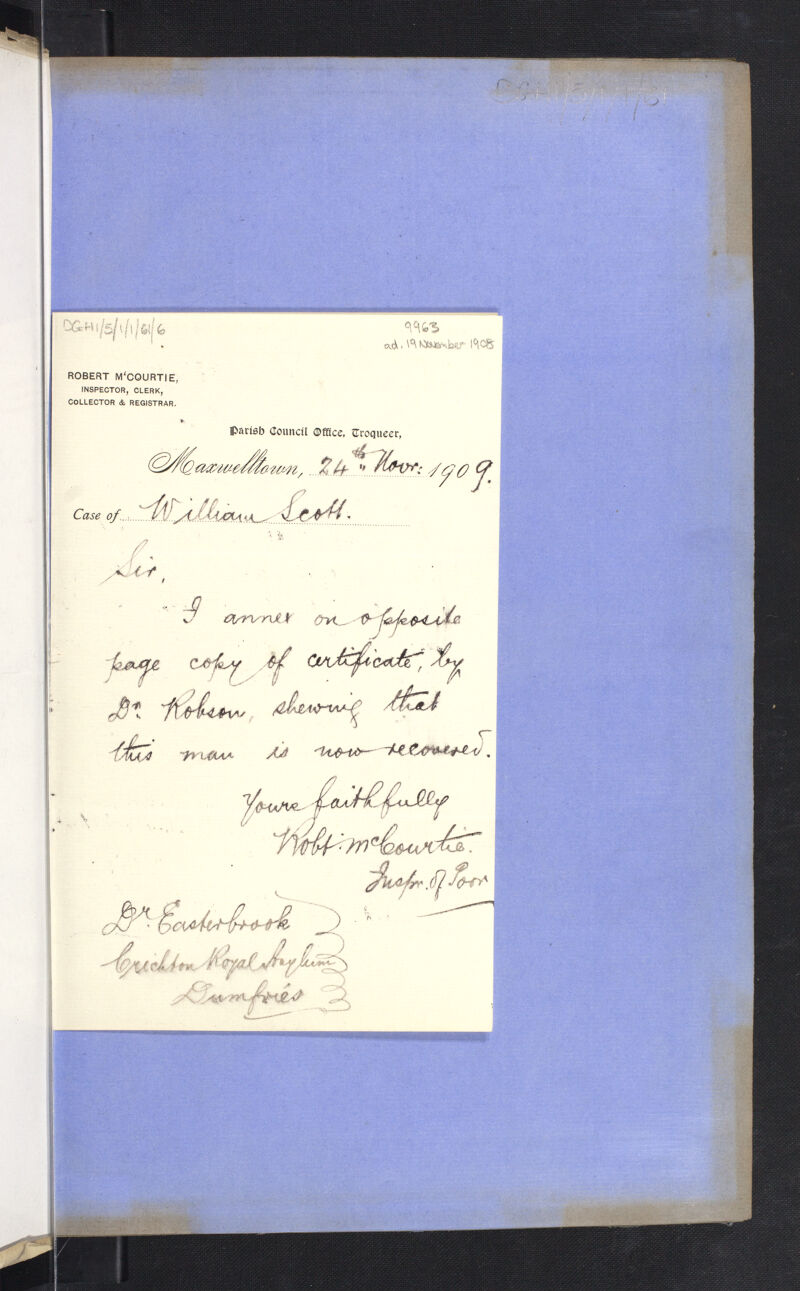 DGH1/5/1/1/61/6
9963
ad. 19 November 1908
ROBERT M'COURTIE,
INSPECTOR, CLERK,
COLLECTOR & REGISTRAR.
Parish Council Office, Troqueer,
Maxwelltown, 24th Novr: 1909.
Case of William Scott.
Sir,
I annex on opposite
page copy of certificate, by
Dr. Robson, shewing that
this man is now recovered.
Yours faithfully
Robt. McCourtie.
Inspr. of Poor
Dr. Easterbrook
Crichton Royal Asylum
Dumfries